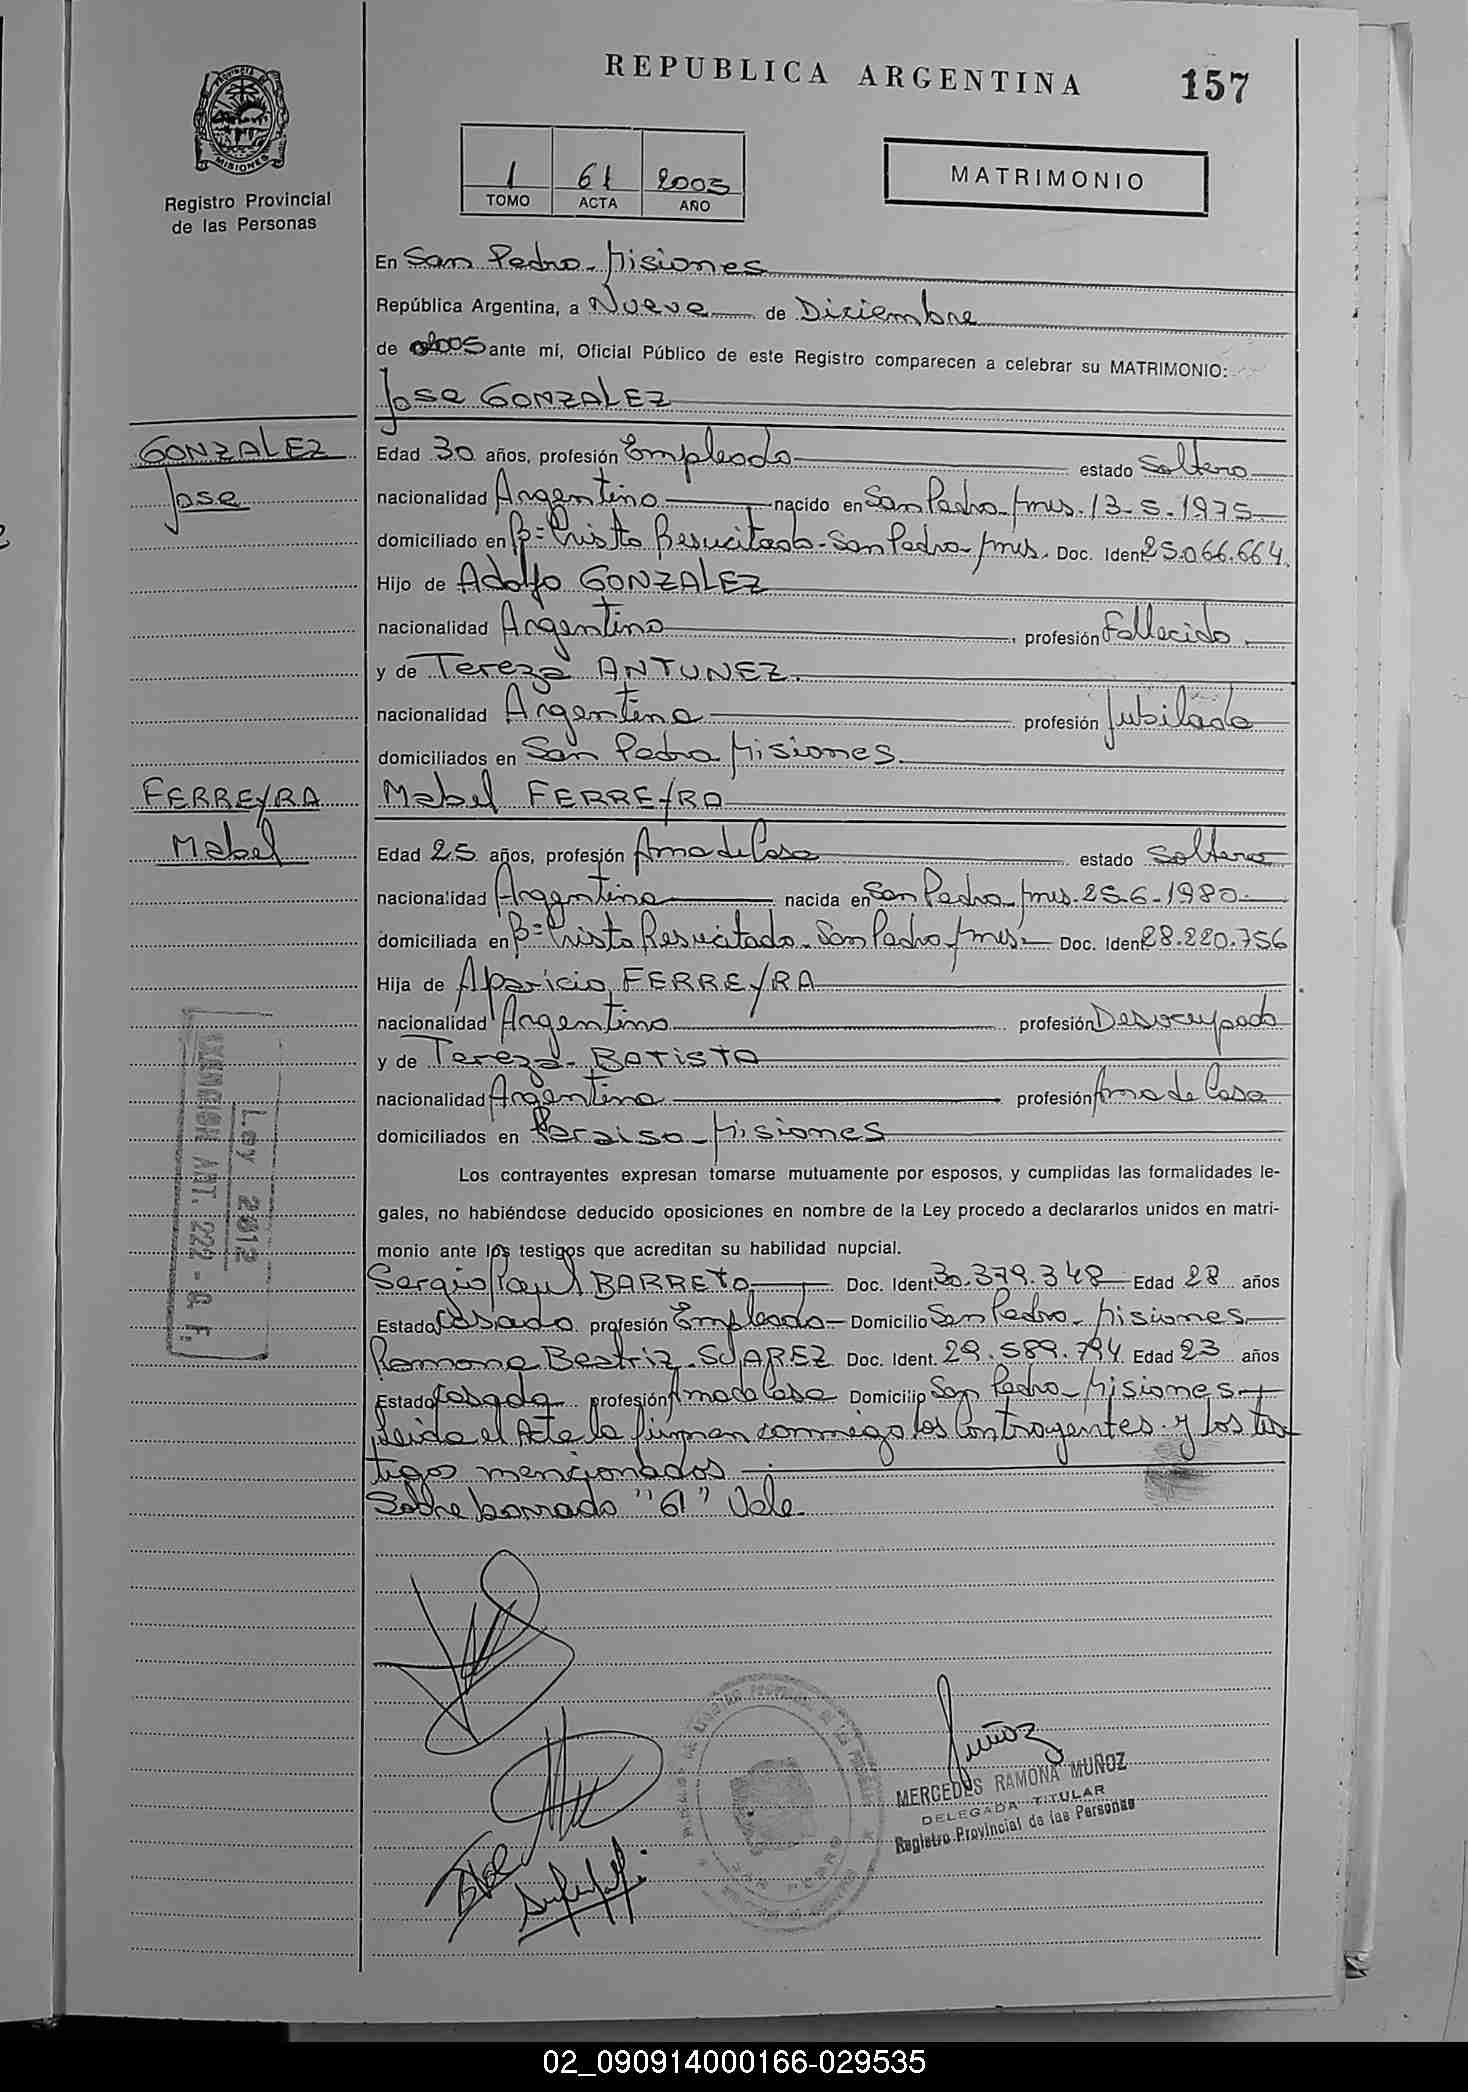 REPUBLICA ARGENTINA
157
PROVINCIA DE
MISIONES
Registro Provincial
de las Personas
1 61 2005
TOMO ACTA AÑO
MATRIMONIO
En San Pedro - Misiones
República Argentina, a Nueve de Diciembre
de 2005 ante mí, Oficial Público de este Registro comparecen a celebrar su MATRIMONIO:
Jose GONZALEZ
GONZALEZ
Jose
Edad 30 años, profesión Empleado estado Soltero
nacionalidad Argentino nacido en San Pedro - Mnes. 13-5-1975
domiciliado en Bº Cristo Resucitado - San Pedro - Mnes. Doc. Ident. 25.066.664
Hijo de Adolfo GONZALEZ
nacionalidad Argentino, profesión Fallecido.
y de Tereza ANTUNEZ.
nacionalidad Argentina profesión Jubilada
domiciliados en San Pedro Misiones
FERREYRA
Mabel
Mabel FERREYRA
Edad 25 años, profesión Ama de Casa estado Soltera
nacionalidad Argentina nacida en San Pedro - Mnes. 25-6-1980
domiciliada en Bº Cristo Resucitado - San Pedro - Mnes - Doc. Ident. 28.220.756
Hija de Aparicio FERREYRA
nacionalidad Argentino profesión Desocupado
y de Tereza - BATISTA
nacionalidad Argentina profesión Ama de Casa
domiciliados en Paraiso - Misiones
Los contrayentes expresan tomarse mutuamente por esposos, y cumplidas las formalidades le-
gales, no habiéndose deducido oposiciones en nombre de la Ley procedo a declararlos unidos en matri-
monio ante los testigos que acreditan su habilidad nupcial.
Sergio Raul BARRETO Doc. Ident. 30.379.348 Edad 28 años
Estado Casado profesión Empleado - Domicilio San Pedro - Misiones
Ramona Beatriz - SUAREZ Doc. Ident. 29.589.794 Edad 23 años
Estado Casada profesión Ama de Casa Domicilio San Pedro - Misiones
Leida el Acta la firman conmigo los Contrayentes y los tes-
tigos mencionados
Sobre borrado "61" Vale.
Ley 2812
EXENCION ART. 222 - C. F.
Muñoz
MERCEDES RAMONA MUÑOZ
DELEGADA TITULAR
Registro Provincial de las Personas
SAN PEDRO
02_090914000166-029535